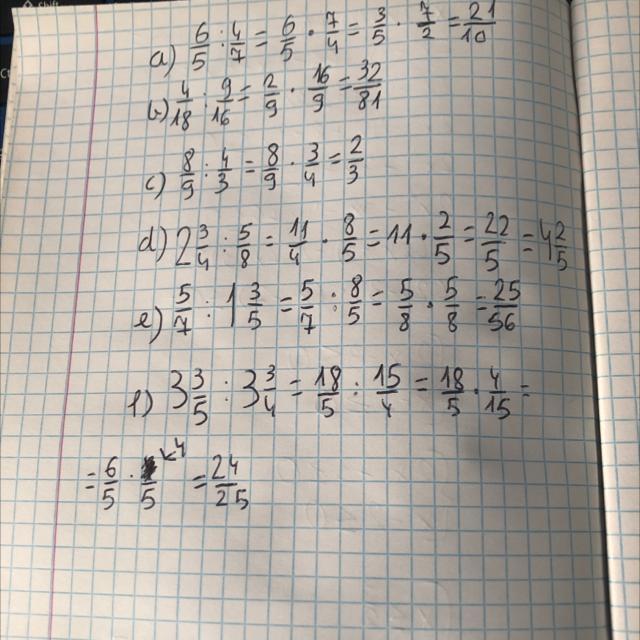 a) 6/5 : 4/7 = 6/5 · 7/4 = 3/5 · 7/2 = 21/10
b) 4/18 : 9/16 = 2/9 · 16/9 = 32/81
c) 8/9 : 4/3 = 8/9 · 3/4 = 2/3
d) 2 3/4 : 5/8 = 11/4 · 8/5 = 11 · 2/5 = 22/5 = 4 2/5
e) 5/7 : 1 3/5 = 5/7 : 8/5 = 5/8 · 5/8 = 25/56
f) 3 3/5 : 3 3/4 = 18/5 : 15/4 = 18/5 · 4/15 =
= 6/5 · 4/5 = 24/25